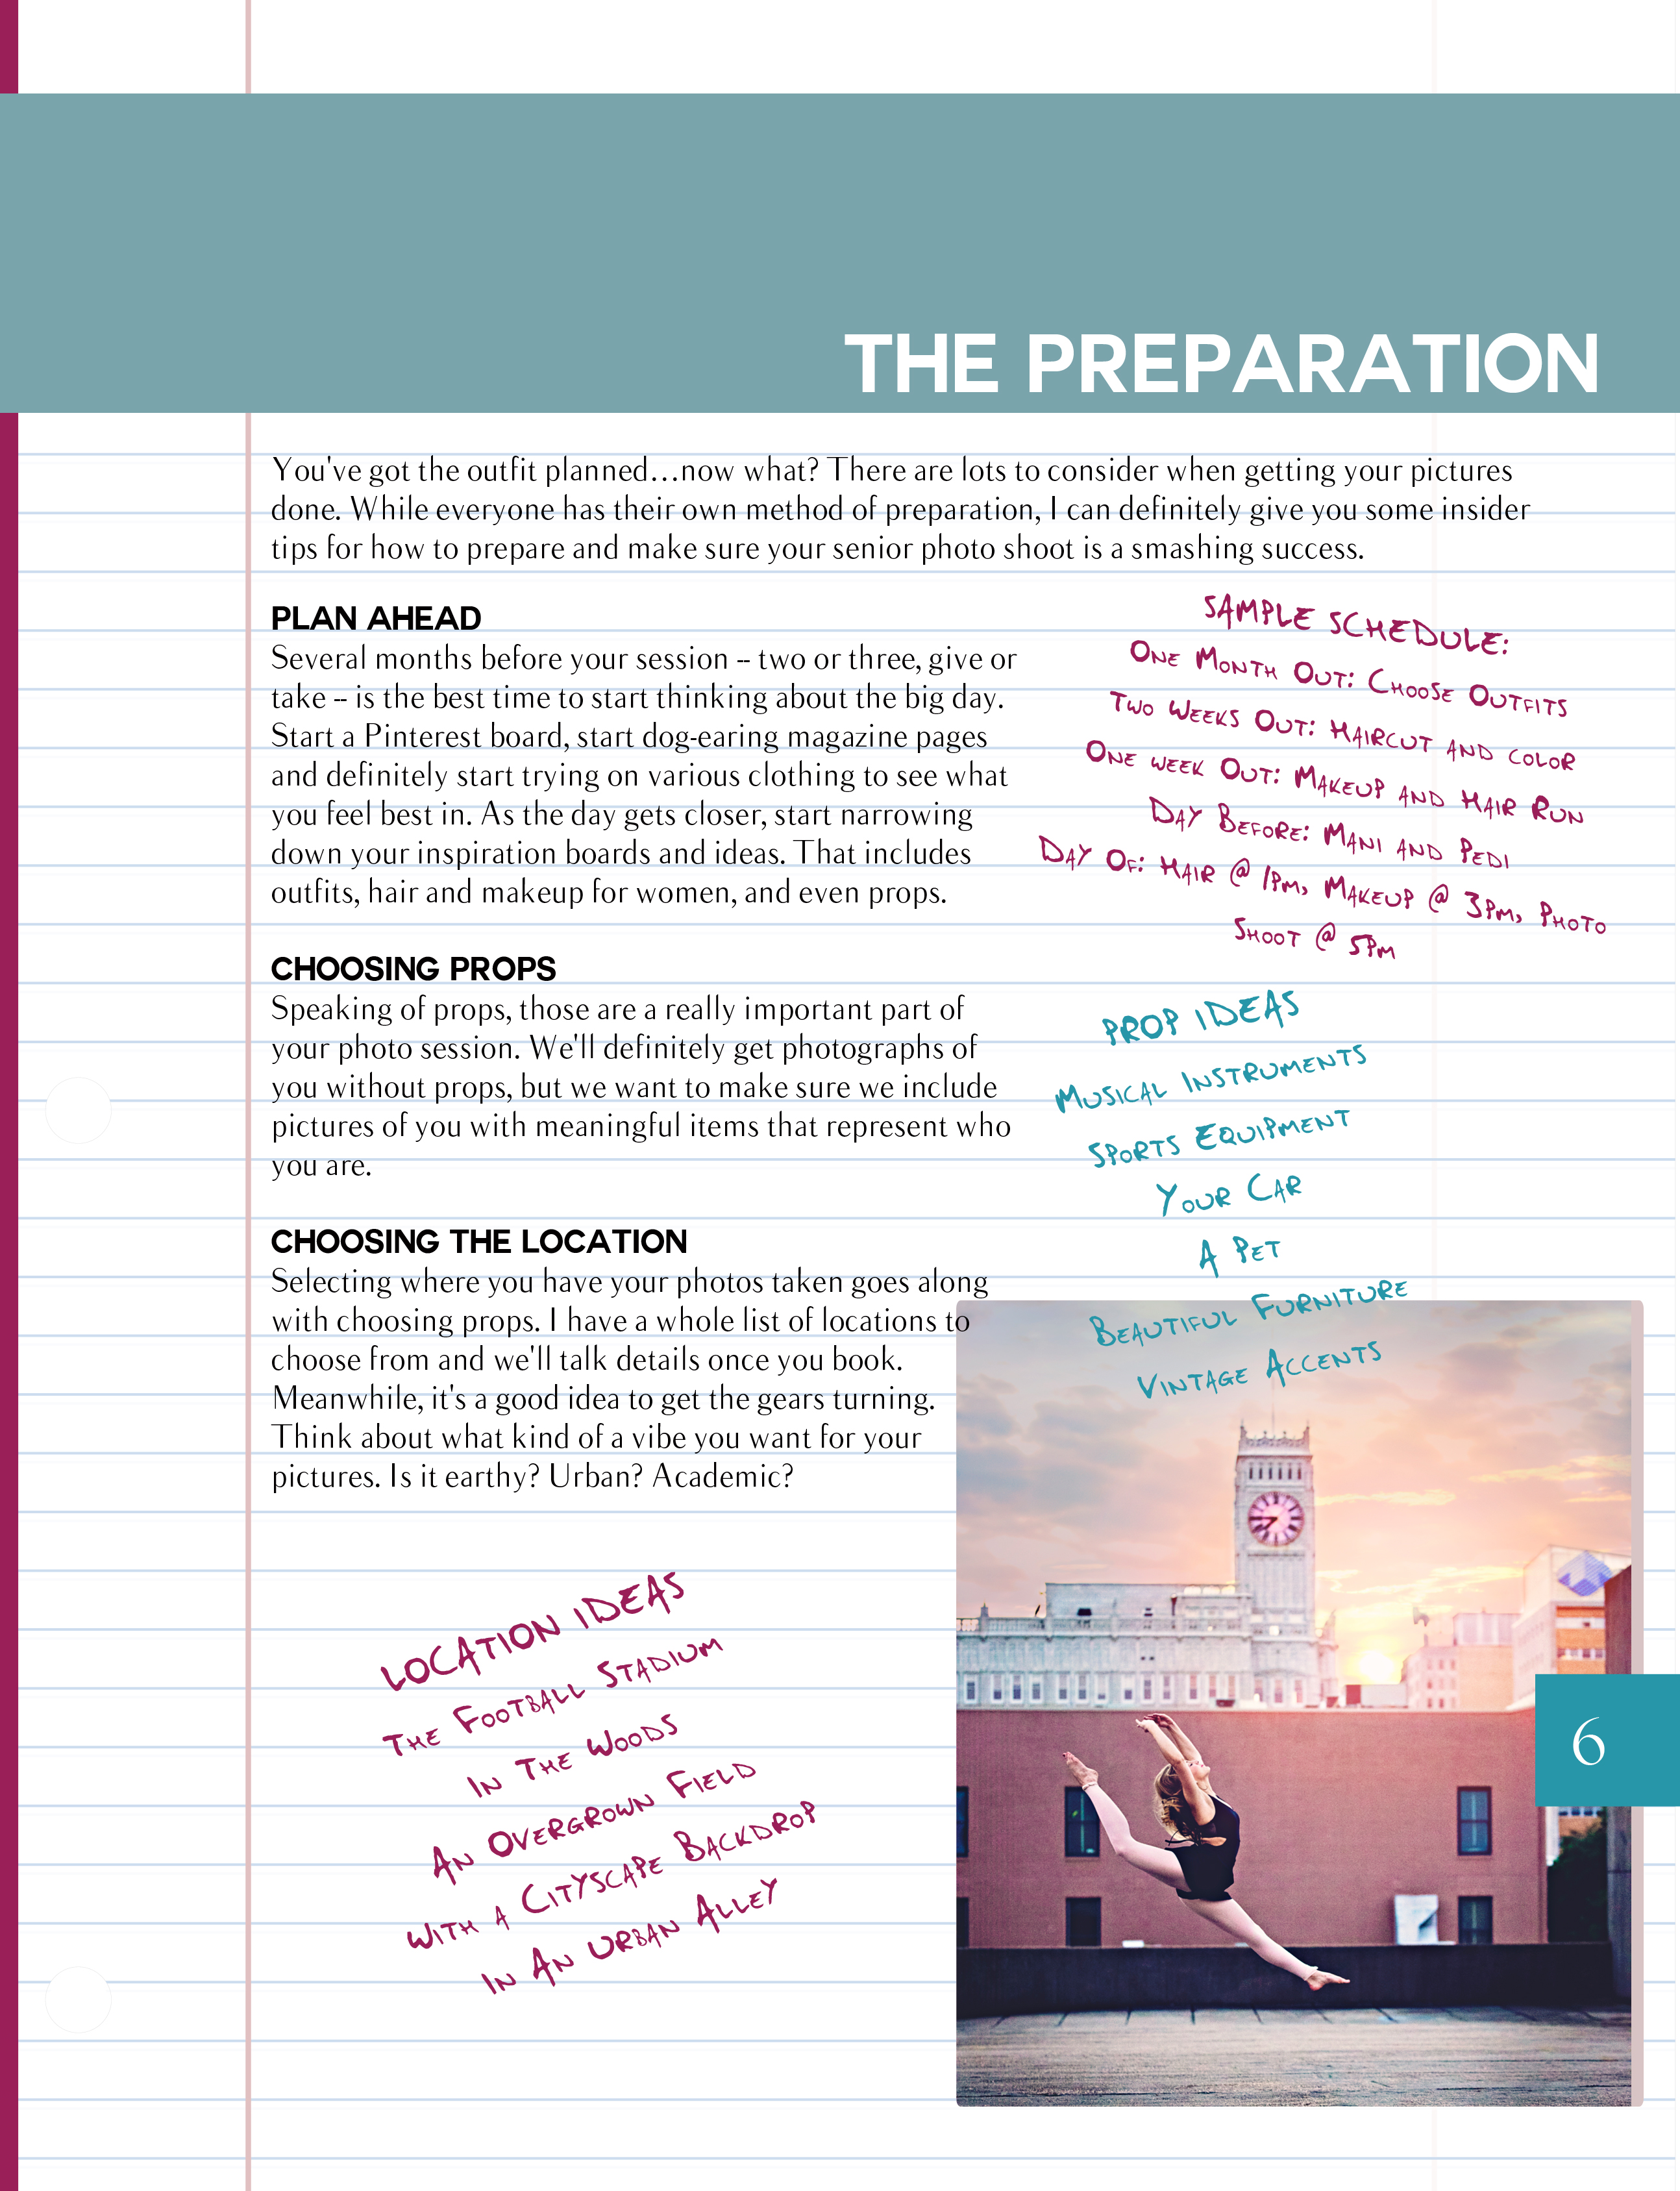 THE PREPARATION
You've got the outfit planned...now what? There are lots to consider when getting your pictures
done. While everyone has their own method of preparation, I can definitely give you some insider
tips for how to prepare and make sure your senior photo shoot is a smashing success.
PLAN AHEAD
Several months before your session -- two or three, give or
take -- is the best time to start thinking about the big day.
Start a Pinterest board, start dog-earing magazine pages
and definitely start trying on various clothing to see what
you feel best in. As the day gets closer, start narrowing
down your inspiration boards and ideas. That includes
outfits, hair and makeup for women, and even props.
SAMPLE SCHEDULE:
ONE MONTH OUT: CHOOSE OUTFITS
TWO WEEKS OUT: HAIRCUT AND COLOR
ONE WEEK OUT: MAKEUP AND HAIR RUN
DAY BEFORE: MANI AND PEDI
DAY OF: HAIR @ 1PM, MAKEUP @ 3PM, PHOTO
SHOOT @ 5PM
CHOOSING PROPS
Speaking of props, those are a really important part of
your photo session. We'll definitely get photographs of
you without props, but we want to make sure we include
pictures of you with meaningful items that represent who
you are.
PROP IDEAS
MUSICAL INSTRUMENTS
SPORTS EQUIPMENT
YOUR CAR
A PET
BEAUTIFUL FURNITURE
VINTAGE ACCENTS
CHOOSING THE LOCATION
Selecting where you have your photos taken goes along
with choosing props. I have a whole list of locations to
choose from and we'll talk details once you book.
Meanwhile, it's a good idea to get the gears turning.
Think about what kind of a vibe you want for your
pictures. Is it earthy? Urban? Academic?
LOCATION IDEAS
THE FOOTBALL STADIUM
IN THE WOODS
AN OVERGROWN FIELD
WITH A CITYSCAPE BACKDROP
IN AN URBAN ALLEY
6